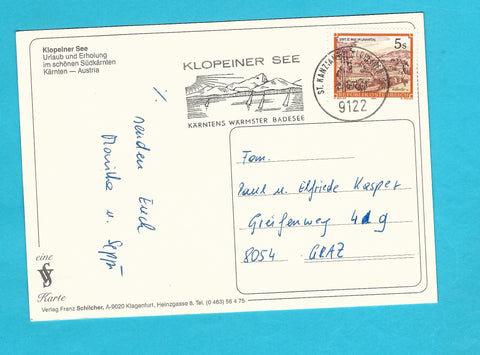 Klopeiner See
Urlaub und Erholung
im schönen Südkärnten
Kärnten – Austria
KLOPEINER SEE
KÄRNTENS WÄRMSTER BADESEE
ST. KANZIAN
9122
5s
REPUBLIK ÖSTERREICH
% senden Euch
Monika u. Seppi
Fam.
Paul u. Elfriede Kasper
Greifenweg
8054 GRAZ
eine
Karte
Verlag Franz Schilcher, A-9020 Klagenfurt, Heinzgasse 8, Tel. (0 463) 56 4 75